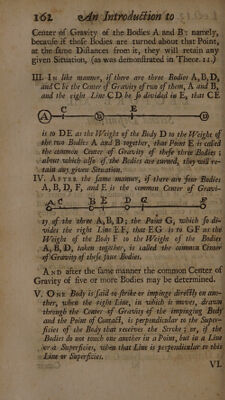 162 An Introduction to
Center of Gravity of the Bodies A and B: namely,
becauſe if theſe Bodies are turned about that Point,
at the ſame Diſtances from it, they will retain any
given Situation, (as was demonſtrated in Theor. 11.)
III. IN like manner, if there are three Bodies A, B, D,
and C be the Center of Gravity of two of them, A and B,
and the right Line CD be ſo divided in E, that CE
A C B E D
is to DE as the Weight of the Body D to the Weight of
the two Bodies A and B together, that Point E is called
the common Center of Gravity of theſe three Bodies;
about which alſo if the Bodies are turned, they will re-
tain any given Situation.
IV. AFTER the ſame manner, if there are four Bodies
A, B, D, F, and E is the common Center of Gravi-
A C B E D G F
ty of the three A, B, D; the Point G, which ſo di-
vides the right Line EF, that EG is to GF as the
Weight of the Body F to the Weight of the Bodies
A, B, D, taken together, is called the common Center
of Gravity of theſe four Bodies.
AND after the ſame manner the common Center of
Gravity of five or more Bodies may be determined.
V. ONE Body is ſaid to ſtrike or impinge directly on ano-
ther, when the right Line, in which it moves, drawn
through the Center of Gravity of the impinging Body
and the Point of Contact, is perpendicular to the Super-
ficies of the Body that receives the Stroke; or, if the
Bodies do not touch one another in a Point, but in a Line
or a Superficies, when that Line is perpendicular to this
Line or Superficies.
VI.